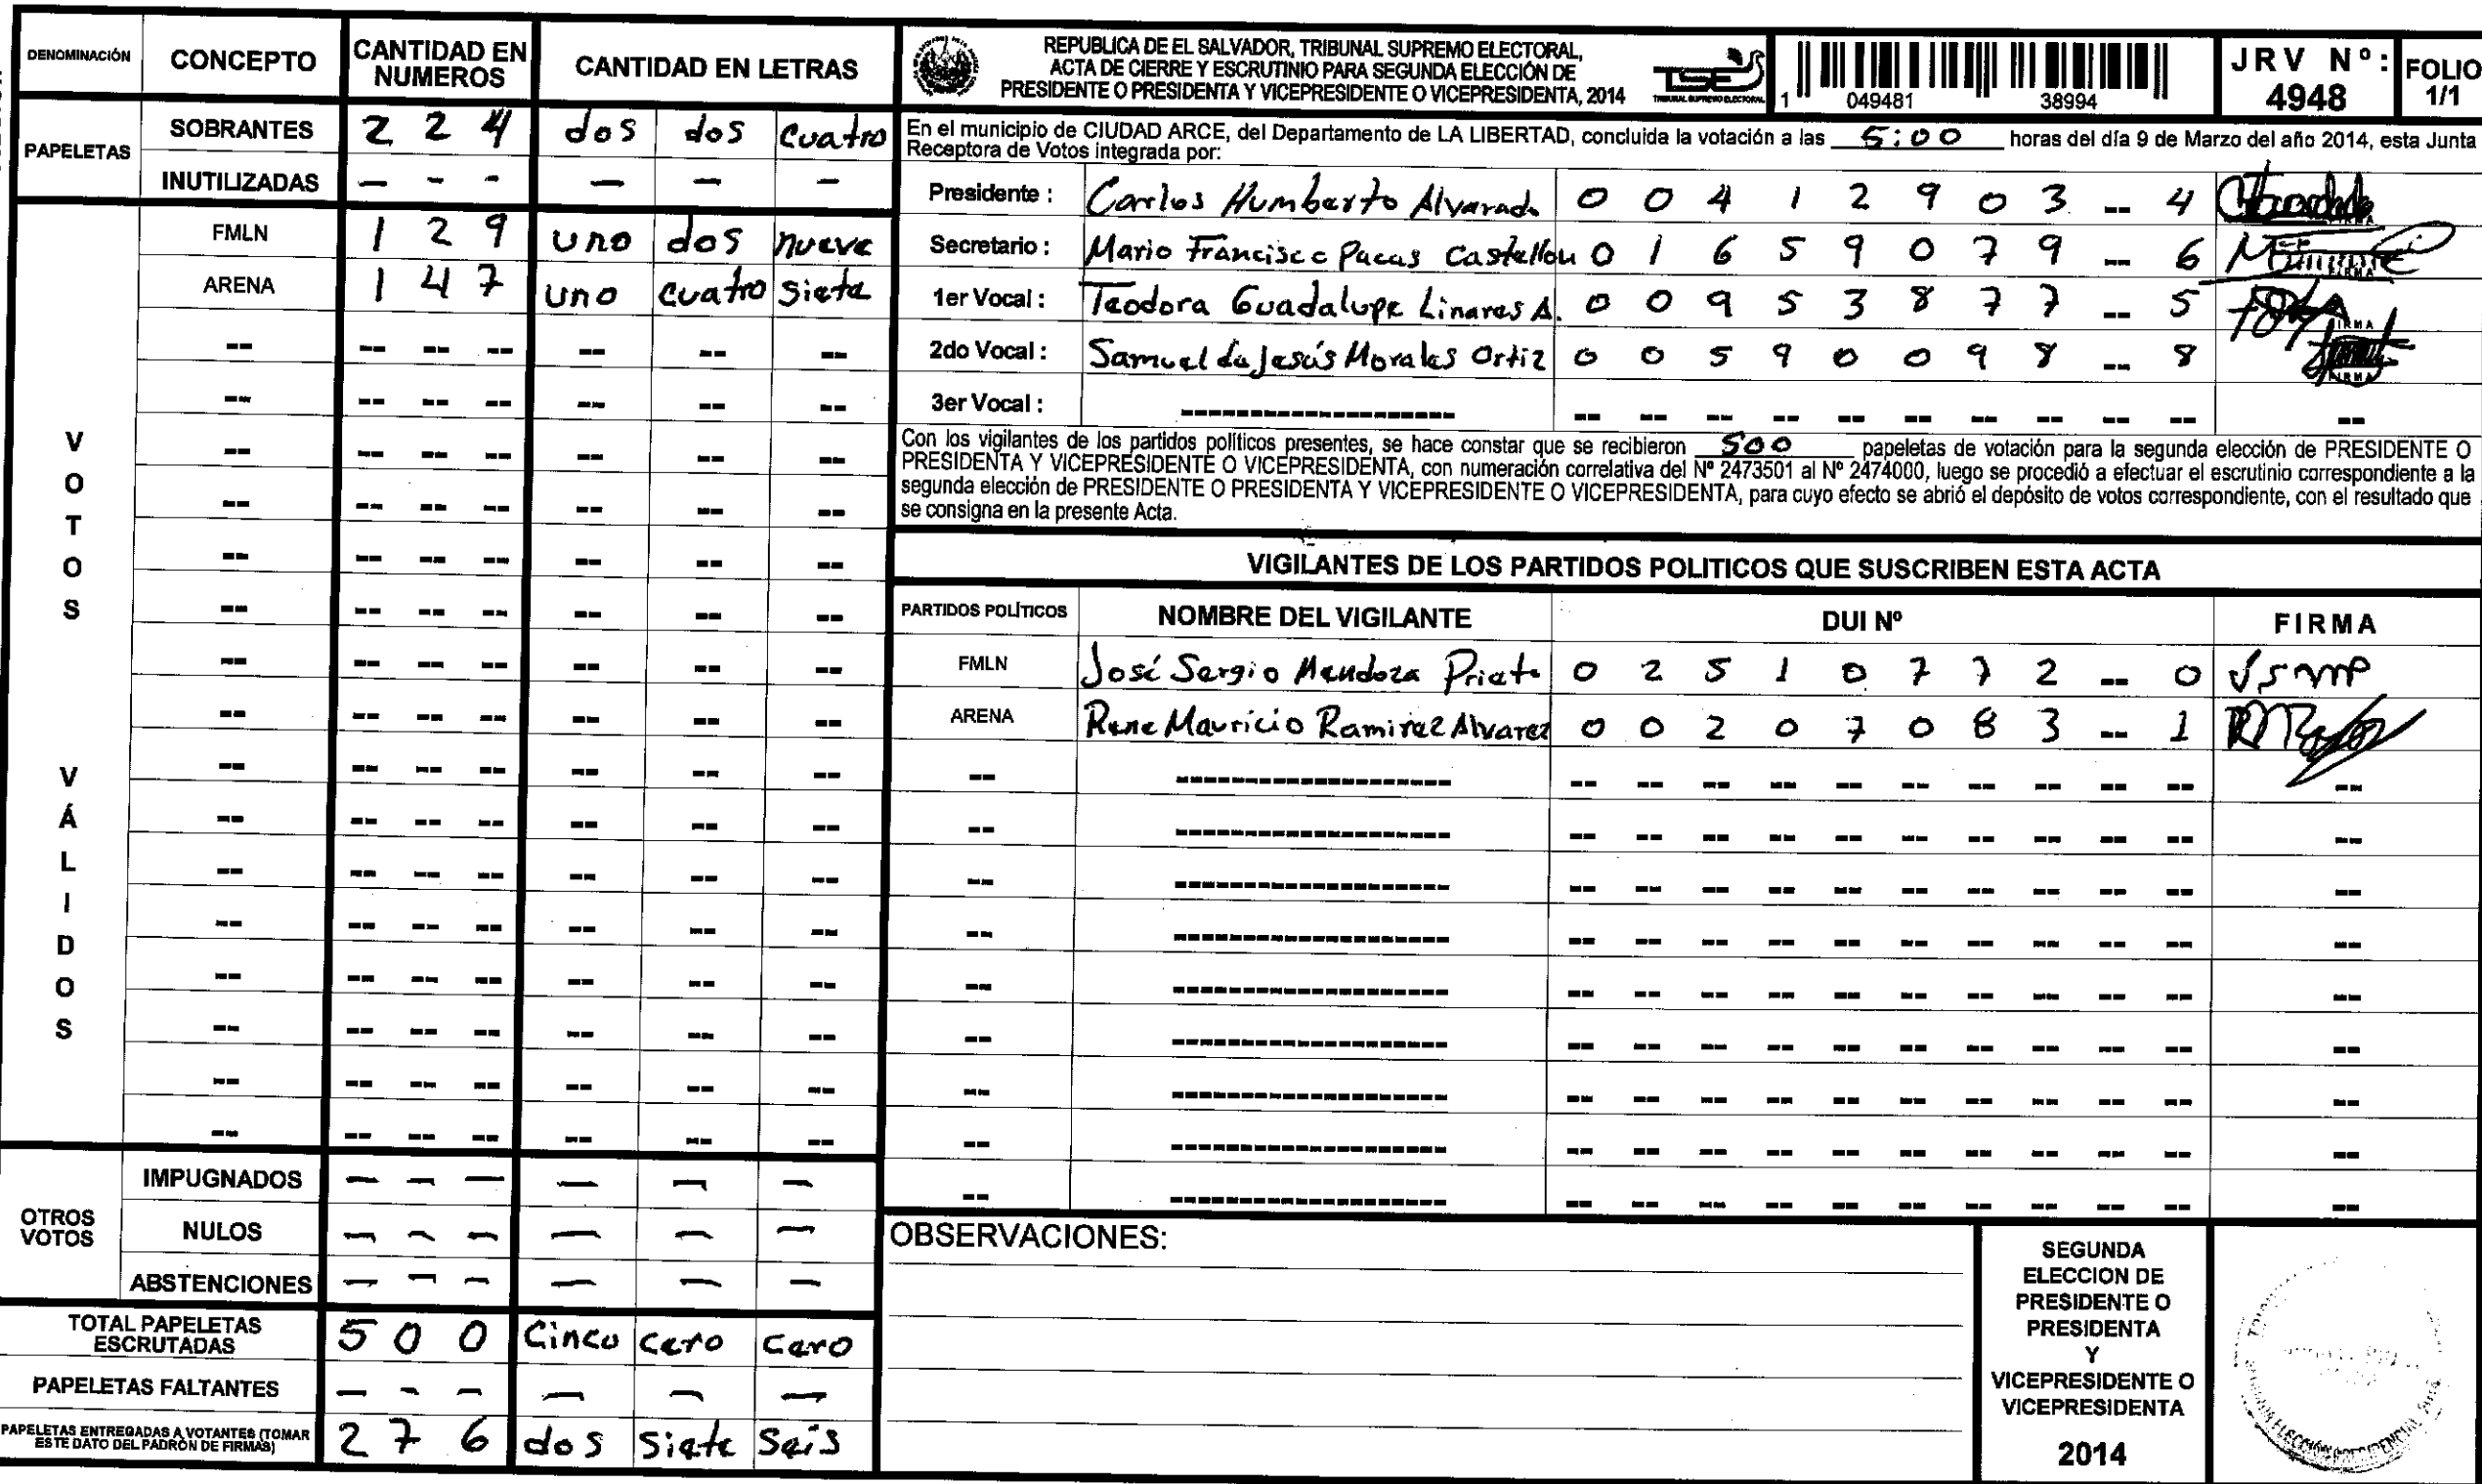 DENOMINACIÓN CONCEPTO CANTIDAD EN NUMEROS CANTIDAD EN LETRAS
PAPELETAS
SOBRANTES 2 2 4 dos dos cuatro
INUTILIZADAS — - - — — —
VOTOS VÁLIDOS
FMLN 1 2 9 uno dos nueve
ARENA 1 4 7 uno cuatro siete
OTROS VOTOS
IMPUGNADOS — — — — — —
NULOS — — — — — —
ABSTENCIONES — — — — — —
TOTAL PAPELETAS ESCRUTADAS 5 0 0 Cinco cero cero
PAPELETAS FALTANTES — - — — — —
PAPELETAS ENTREGADAS A VOTANTES (TOMAR ESTE DATO DEL PADRÓN DE FIRMAS) 2 7 6 dos siete seis
REPUBLICA DE EL SALVADOR, TRIBUNAL SUPREMO ELECTORAL,
ACTA DE CIERRE Y ESCRUTINIO PARA SEGUNDA ELECCIÓN DE
PRESIDENTE O PRESIDENTA Y VICEPRESIDENTE O VICEPRESIDENTA, 2014
TSE
TRIBUNAL SUPREMO ELECTORAL
1 049481 38994
JRV Nº: 4948
FOLIO 1/1
En el municipio de CIUDAD ARCE, del Departamento de LA LIBERTAD, concluida la votación a las 5:00 horas del día 9 de Marzo del año 2014, esta Junta
Receptora de Votos integrada por:
Presidente : Carlos Humberto Alvarado 0 0 4 1 2 9 0 3 -- 4
Secretario : Mario Francisco Pacas Castellon 0 1 6 5 9 0 7 9 -- 6
1er Vocal : Teodora Guadalupe Linares A. 0 0 9 5 3 8 7 7 -- 5
2do Vocal : Samuel de Jesús Morales Ortiz 0 0 5 9 0 0 9 8 -- 8
3er Vocal :
Con los vigilantes de los partidos políticos presentes, se hace constar que se recibieron 500 papeletas de votación para la segunda elección de PRESIDENTE O
PRESIDENTA Y VICEPRESIDENTE O VICEPRESIDENTA, con numeración correlativa del Nº 2473501 al Nº 2474000, luego se procedió a efectuar el escrutinio correspondiente a la
segunda elección de PRESIDENTE O PRESIDENTA Y VICEPRESIDENTE O VICEPRESIDENTA, para cuyo efecto se abrió el depósito de votos correspondiente, con el resultado que
se consigna en la presente Acta.
VIGILANTES DE LOS PARTIDOS POLITICOS QUE SUSCRIBEN ESTA ACTA
PARTIDOS POLÍTICOS NOMBRE DEL VIGILANTE DUI Nº FIRMA
FMLN José Sergio Mendoza Prieto 0 2 5 1 0 7 7 2 -- 0 JSMP
ARENA Rene Mauricio Ramirez Alvarez 0 0 2 0 7 0 8 3 -- 1
OBSERVACIONES:
SEGUNDA
ELECCION DE
PRESIDENTE O
PRESIDENTA
Y
VICEPRESIDENTE O
VICEPRESIDENTA
2014